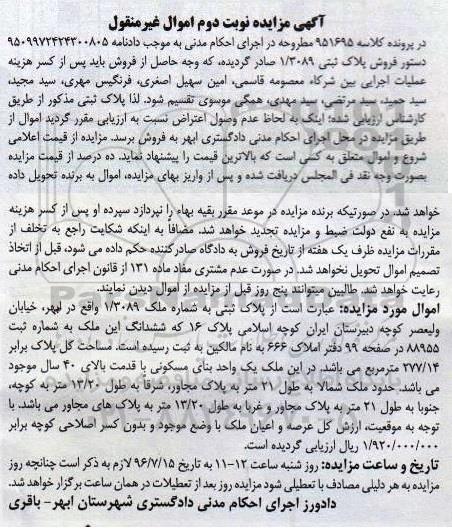 آگهی مزایده نوبت دوم اموال غیرمنقول
در پرونده کلاسه ۹۵۱۶۹۵ مطروحه در اجرای احکام مدنی به موجب دادنامه ۹۵۰۹۹۷۲۴۲۴۳۰۰۸۰۵
دستور فروش پلاک ثبتی ۱/۳۰۸۹ صادر گردیده، که وجه حاصل از فروش باید پس از کسر هزینه
عملیات اجرایی بین شرکاء معصومه قاسمی، امین سهیل اصغری، فرنگیس مهری، سید مجید،
سید حمید، سید مرتضی، سید مهدی، همگی موسوی تقسیم شود. لذا پلاک ثبتی مذکور از طریق
کارشناس ارزیابی شده؛ اینک به لحاظ عدم وصول اعتراض نسبت به ارزیابی مقرر گردید اموال از
طریق مزایده در محل اجرای احکام مدنی دادگستری ابهر به فروش برسد. مزایده از قیمت اعلامی
شروع و اموال متعلق به کسی است که بالاترین قیمت را پیشنهاد نماید. ده درصد از قیمت مزایده
بصورت وجه نقد فی المجلس دریافت شده و پس از واریز بهای مزایده، اموال به برنده تحویل داده
خواهد شد. در صورتیکه برنده مزایده در موعد مقرر بقیه بهاء را نپردازد سپرده او پس از کسر هزینه
مزایده به نفع دولت ضبط و مزایده تجدید خواهد شد. مضافا به اینکه شکایت راجع به تخلف از
مقررات مزایده ظرف یک هفته از تاریخ فروش به دادگاه صادرکننده حکم داده می شود، قبل از اتخاذ
تصمیم اموال تحویل نخواهد شد. در صورت عدم مشتری مفاد ماده ۱۳۱ از قانون اجرای احکام مدنی
رعایت خواهد شد. طالبین میتوانند پنج روز قبل از مزایده از اموال دیدن نمایند.
اموال مورد مزایده: عبارت است از پلاک ثبتی به شماره ملک ۱/۳۰۸۹ واقع در ابهر، خیابان
ولیعصر کوچه دبیرستان ایران کوچه اسلامی پلاک ۱۶ که ششدانگ این ملک به شماره ثبت
۸۸۹۵۵ در صفحه ۹۹ دفتر املاک ۶۶۶ به نام مالکین به ثبت رسیده است. مساحت کل پلاک برابر
۲۷۷/۱۴ مترمربع می باشد. در این ملک یک واحد بنای مسکونی با قدمت بالای ۴۰ سال موجود
می باشد. حدود ملک شمالا به طول ۲۱ متر به پلاک مجاور، شرقاً به طول ۱۳/۲۰ متر به کوچه،
جنوبا به طول ۲۱ متر به پلاک مجاور و غربا به طول ۱۳/۲۰ متر به پلاک های مجاور می باشد. با
توجه به موقعیت، ارزش کل عرصه و اعیان ملک با وضع موجود و بدون کسر اصلاحی کوچه برابر
۱/۹۲۰/۰۰۰/۰۰۰ ریال ارزیابی گردیده است.
تاریخ و ساعت مزایده: روز شنبه ساعت ۱۲-۱۱ به تاریخ ۹۶/۷/۱۵ لازم به ذکر است چنانچه روز
مزایده به هر دلیلی مصادف با تعطیلی شود مزایده روز بعد از تعطیلات در همان ساعت برگزار خواهد شد.
دادورز اجرای احکام مدنی دادگستری شهرستان ابهر- باقری